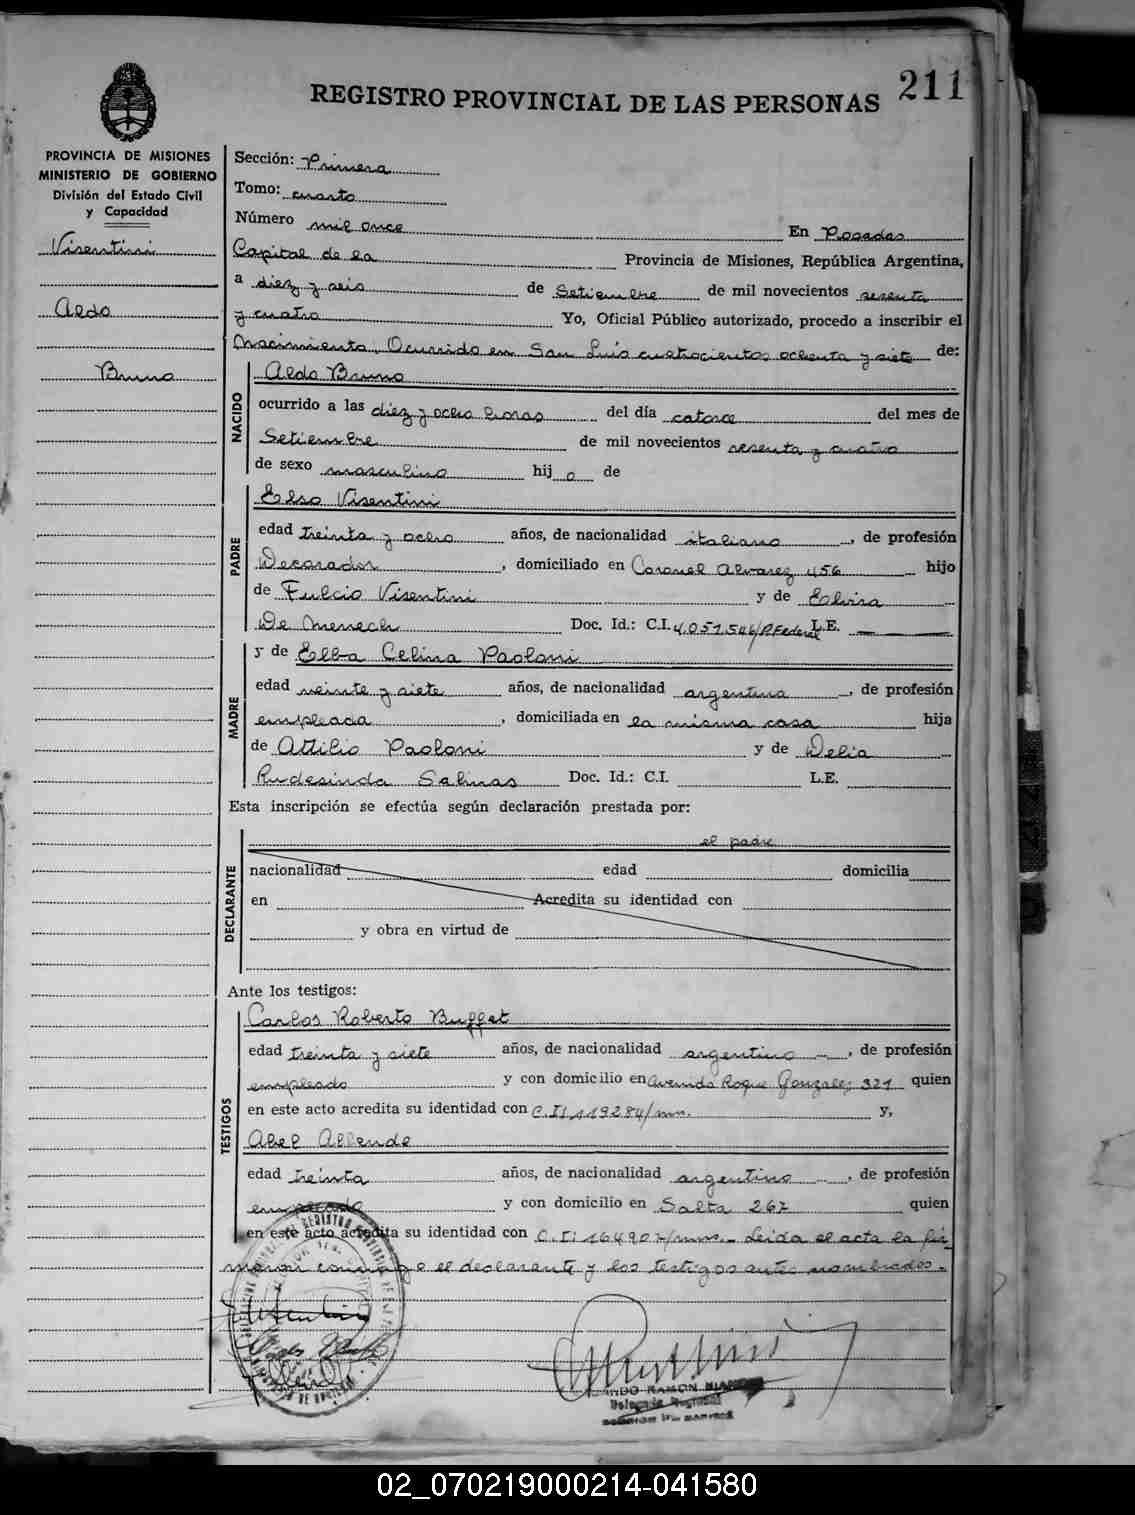 211
REGISTRO PROVINCIAL DE LAS PERSONAS
PROVINCIA DE MISIONES
MINISTERIO DE GOBIERNO
División del Estado Civil
y Capacidad
Visentini
Aldo
Bruno
Sección: Primera
Tomo: cuarto
Número mil once En Posadas
Capital de la Provincia de Misiones, República Argentina,
a diez y seis de Setiembre de mil novecientos sesenta
y cuatro Yo, Oficial Público autorizado, procedo a inscribir el
Nacimiento. Ocurrido en San Luis cuatrocientos ochenta y siete de:
NACIDO
Aldo Bruno
ocurrido a las diez y ocho horas del día catorce del mes de
Setiembre de mil novecientos sesenta y cuatro
de sexo masculino hij o de
PADRE
Elso Visentini
edad treinta y ocho años, de nacionalidad italiano, de profesión
Decorador, domiciliado en Coronel Alvarez 456 hijo
de Fulcio Visentini y de Elvira
De Menech Doc. Id.: C.I. 4.051.546/P.Federal L.E.
MADRE
y de Elba Celina Paoloni
edad veinte y siete años, de nacionalidad argentina, de profesión
empleada, domiciliada en la misma casa hija
de Attilio Paoloni y de Delia
Rudesinda Salinas Doc. Id.: C.I. L.E.
Esta inscripción se efectúa según declaración prestada por:
DECLARANTE
el padre
nacionalidad edad domicilia
en Acredita su identidad con
y obra en virtud de
Ante los testigos:
TESTIGOS
Carlos Roberto Buffet
edad treinta y siete años, de nacionalidad argentino, de profesión
empleado y con domicilio en Avenida Roque Gonzalez 321 quien
en este acto acredita su identidad con C.I: 119284/mns. y,
Abel Allende
edad treinta años, de nacionalidad argentino, de profesión
empleado y con domicilio en Salta 267 quien
en este acto acredita su identidad con C.I: 164907/mns. - Leida el acta la fir
maron conmigo el declarante y los testigos antes nombrados. -
RAMON
Delegado
02_070219000214-041580